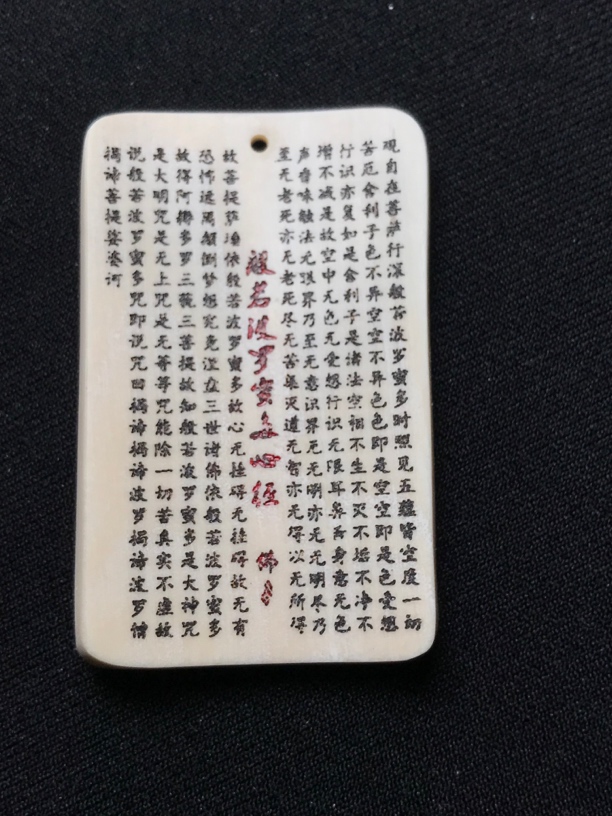 观自在菩萨行深般若波罗蜜多时照见五蕴皆空度一切
苦厄舍利子色不异空空不异色色即是空空即是色受想
行识亦复如是舍利子是诸法空相不生不灭不垢不净不
增不减是故空中无色无受想行识无眼耳鼻舌身意无色
声香味触法无眼界乃至无意识界无无明亦无无明尽乃
至无老死亦无老死尽无苦集灭道无智亦无得以无所得
般若波罗蜜多心经 佛
故菩提萨埵依般若波罗蜜多故心无挂碍无挂碍故无有
恐怖远离颠倒梦想究竟涅盘三世诸佛依般若波罗蜜多
故得阿耨多罗三藐三菩提故知般若波罗蜜多是大神咒
是大明咒是无上咒是无等等咒能除一切苦真实不虚故
说般若波罗蜜多咒即说咒曰揭谛揭谛波罗揭谛波罗僧
揭谛菩提娑婆诃